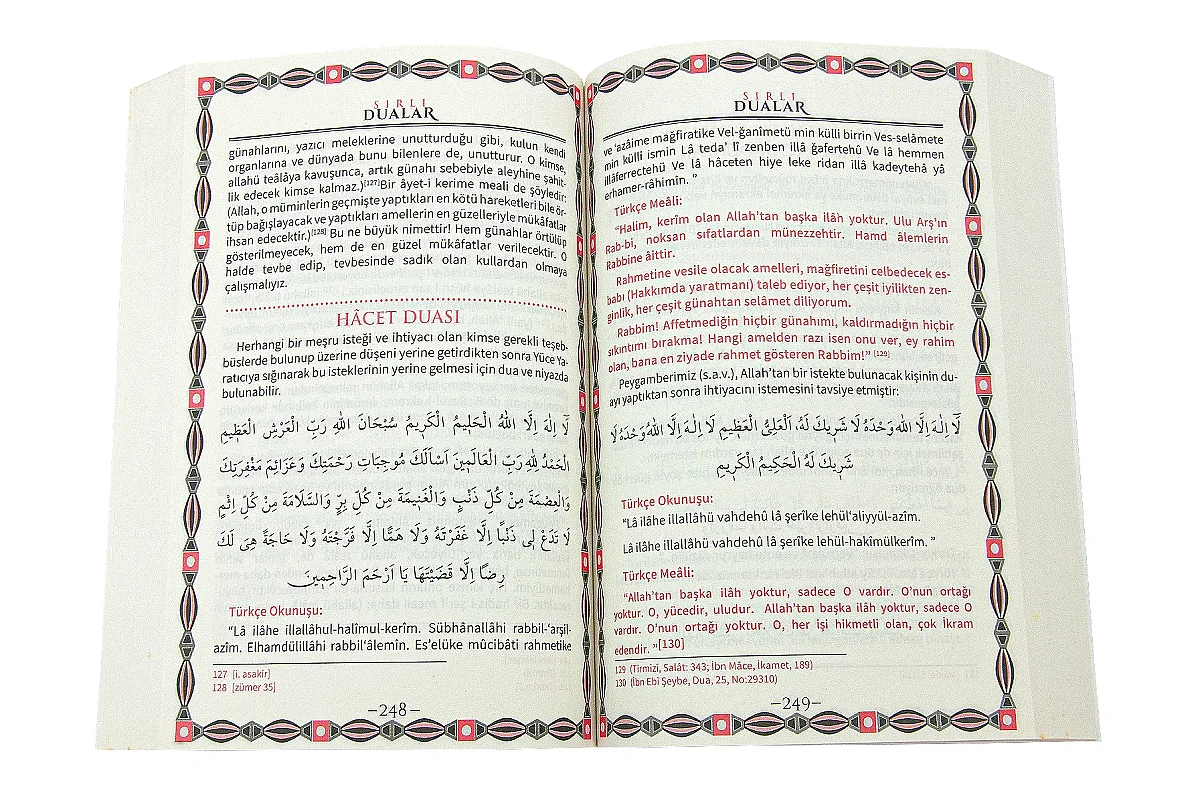 SIRLI
DUALAR
günahlarını, yazıcı meleklerine unutturduğu gibi, kulun kendi
organlarına ve dünyada bunu bilenlere de, unutturur. O kimse,
allahü teâlâya kavuşunca, artık günahı sebebiyle aleyhine şahit-
lik edecek kimse kalmaz.)[127]Bir âyet-i kerime meali de şöyledir:
(Allah, o müminlerin geçmişte yaptıkları en kötü hareketleri bile ör-
tüp bağışlayacak ve yaptıkları amellerin en güzelleriyle mükâfatlar
ihsan edecektir.)[128] Bu ne büyük nimettir! Hem günahlar örtülüp
gösterilmeyecek, hem de en güzel mükâfatlar verilecektir. O
halde tevbe edip, tevbesinde sadık olan kullardan olmaya
çalışmalıyız.
HÂCET DUASI
Herhangi bir meşru isteği ve ihtiyacı olan kimse gerekli teşeb-
büslerde bulunup üzerine düşeni yerine getirdikten sonra Yüce Ya-
ratıcıya sığınarak bu isteklerinin yerine gelmesi için dua ve niyazda
bulunabilir.
لَٓا اِلٰهَ اِلَّا اللهُ الْحَلِيمُ الْكَرِيمُ سُبْحَانَ اللهِ رَبِّ الْعَرْشِ الْعَظِيمِ
اَلْحَمْدُ لِلهِ رَبِّ الْعَالَمِينَ اَسْاَلُكَ مُوجِبَاتِ رَحْمَتِكَ وَعَزَائِمَ مَغْفِرَتِكَ
وَالْعِصْمَةَ مِنْ كُلِّ ذَنْبٍ وَالْغَنِيمَةَ مِنْ كُلِّ بِرٍّ وَالسَّلَامَةَ مِنْ كُلِّ اِثْمٍ
لَا تَدَعْ لِى ذَنْبًا اِلَّا غَفَرْتَهُ وَلَا هَمًّا اِلَّا فَرَّجْتَهُ وَلَا حَاجَةً هِىَ لَكَ
رِضًا اِلَّا قَضَيْتَهَا يَا اَرْحَمَ الرَّاحِمِينَ
Türkçe Okunuşu:
“Lâ ilâhe illallâhul-halîmul-kerîm. Sübhânallâhi rabbil-‘arşil-
azîm. Elhamdülillâhi rabbil‘âlemîn. Es’elüke mûcibâti rahmetike
127 [i. asakir]
128 [zümer 35]
–248–
SIRLI
DUALAR
ve ‘azâime mağfiratike Vel-ğanîmetü min külli birrin Ves-selâmete
min külli ismin Lâ teda’ lî zenben illâ ğafertehû Ve lâ hemmen
illâferrectehü Ve lâ hâceten hiye leke ridan illâ kadeytehâ yâ
erhamer-râhimîn. ”
Türkçe Meâli:
“Halim, kerîm olan Allah’tan başka ilâh yoktur. Ulu Arş’ın
Rab-bi, noksan sıfatlardan münezzehtir. Hamd âlemlerin
Rabbine âittir.
Rahmetine vesile olacak amelleri, mağfiretini celbedecek es-
babı (Hakkımda yaratmanı) taleb ediyor, her çeşit iyilikten zen-
ginlik, her çeşit günahtan selâmet diliyorum.
Rabbim! Affetmediğin hiçbir günahımı, kaldırmadığın hiçbir
sıkıntımı bırakma! Hangi amelden razı isen onu ver, ey rahim
olan, bana en ziyade rahmet gösteren Rabbim!” [129]
Peygamberimiz (s.a.v.), Allah’tan bir istekte bulunacak kişinin du-
ayı yaptıktan sonra ihtiyacını istemesini tavsiye etmiştir:
لَٓا اِلٰهَ اِلَّا الله وَحْدَهُ لَا شَرِيكَ لَهُ، اَلْعَلِىُّ الْعَظِيمِ لَا اِلٰهَ اِلَّا اللهُ وَحْدَهُ لَا
شَرِيكَ لَهُ الْحَكِيمُ الْكَرِيمِ
Türkçe Okunuşu:
“Lâ ilâhe illallâhü vahdehû lâ şerîke lehül‘aliyyül-azîm.
Lâ ilâhe illallâhü vahdehû lâ şerîke lehül-hakîmülkerîm. ”
Türkçe Meâli:
“Allah’tan başka ilâh yoktur, sadece O vardır. O’nun ortağı
yoktur. O, yücedir, uludur. Allah’tan başka ilâh yoktur, sadece O
vardır. O’nun ortağı yoktur. O, her işi hikmetli olan, çok İkram
edendir. ”[130]
129 (Tirmizi, Salât: 343; İbn Mâce, İkamet, 189)
130 (İbn Ebî Şeybe, Dua, 25, No:29310)
–249–